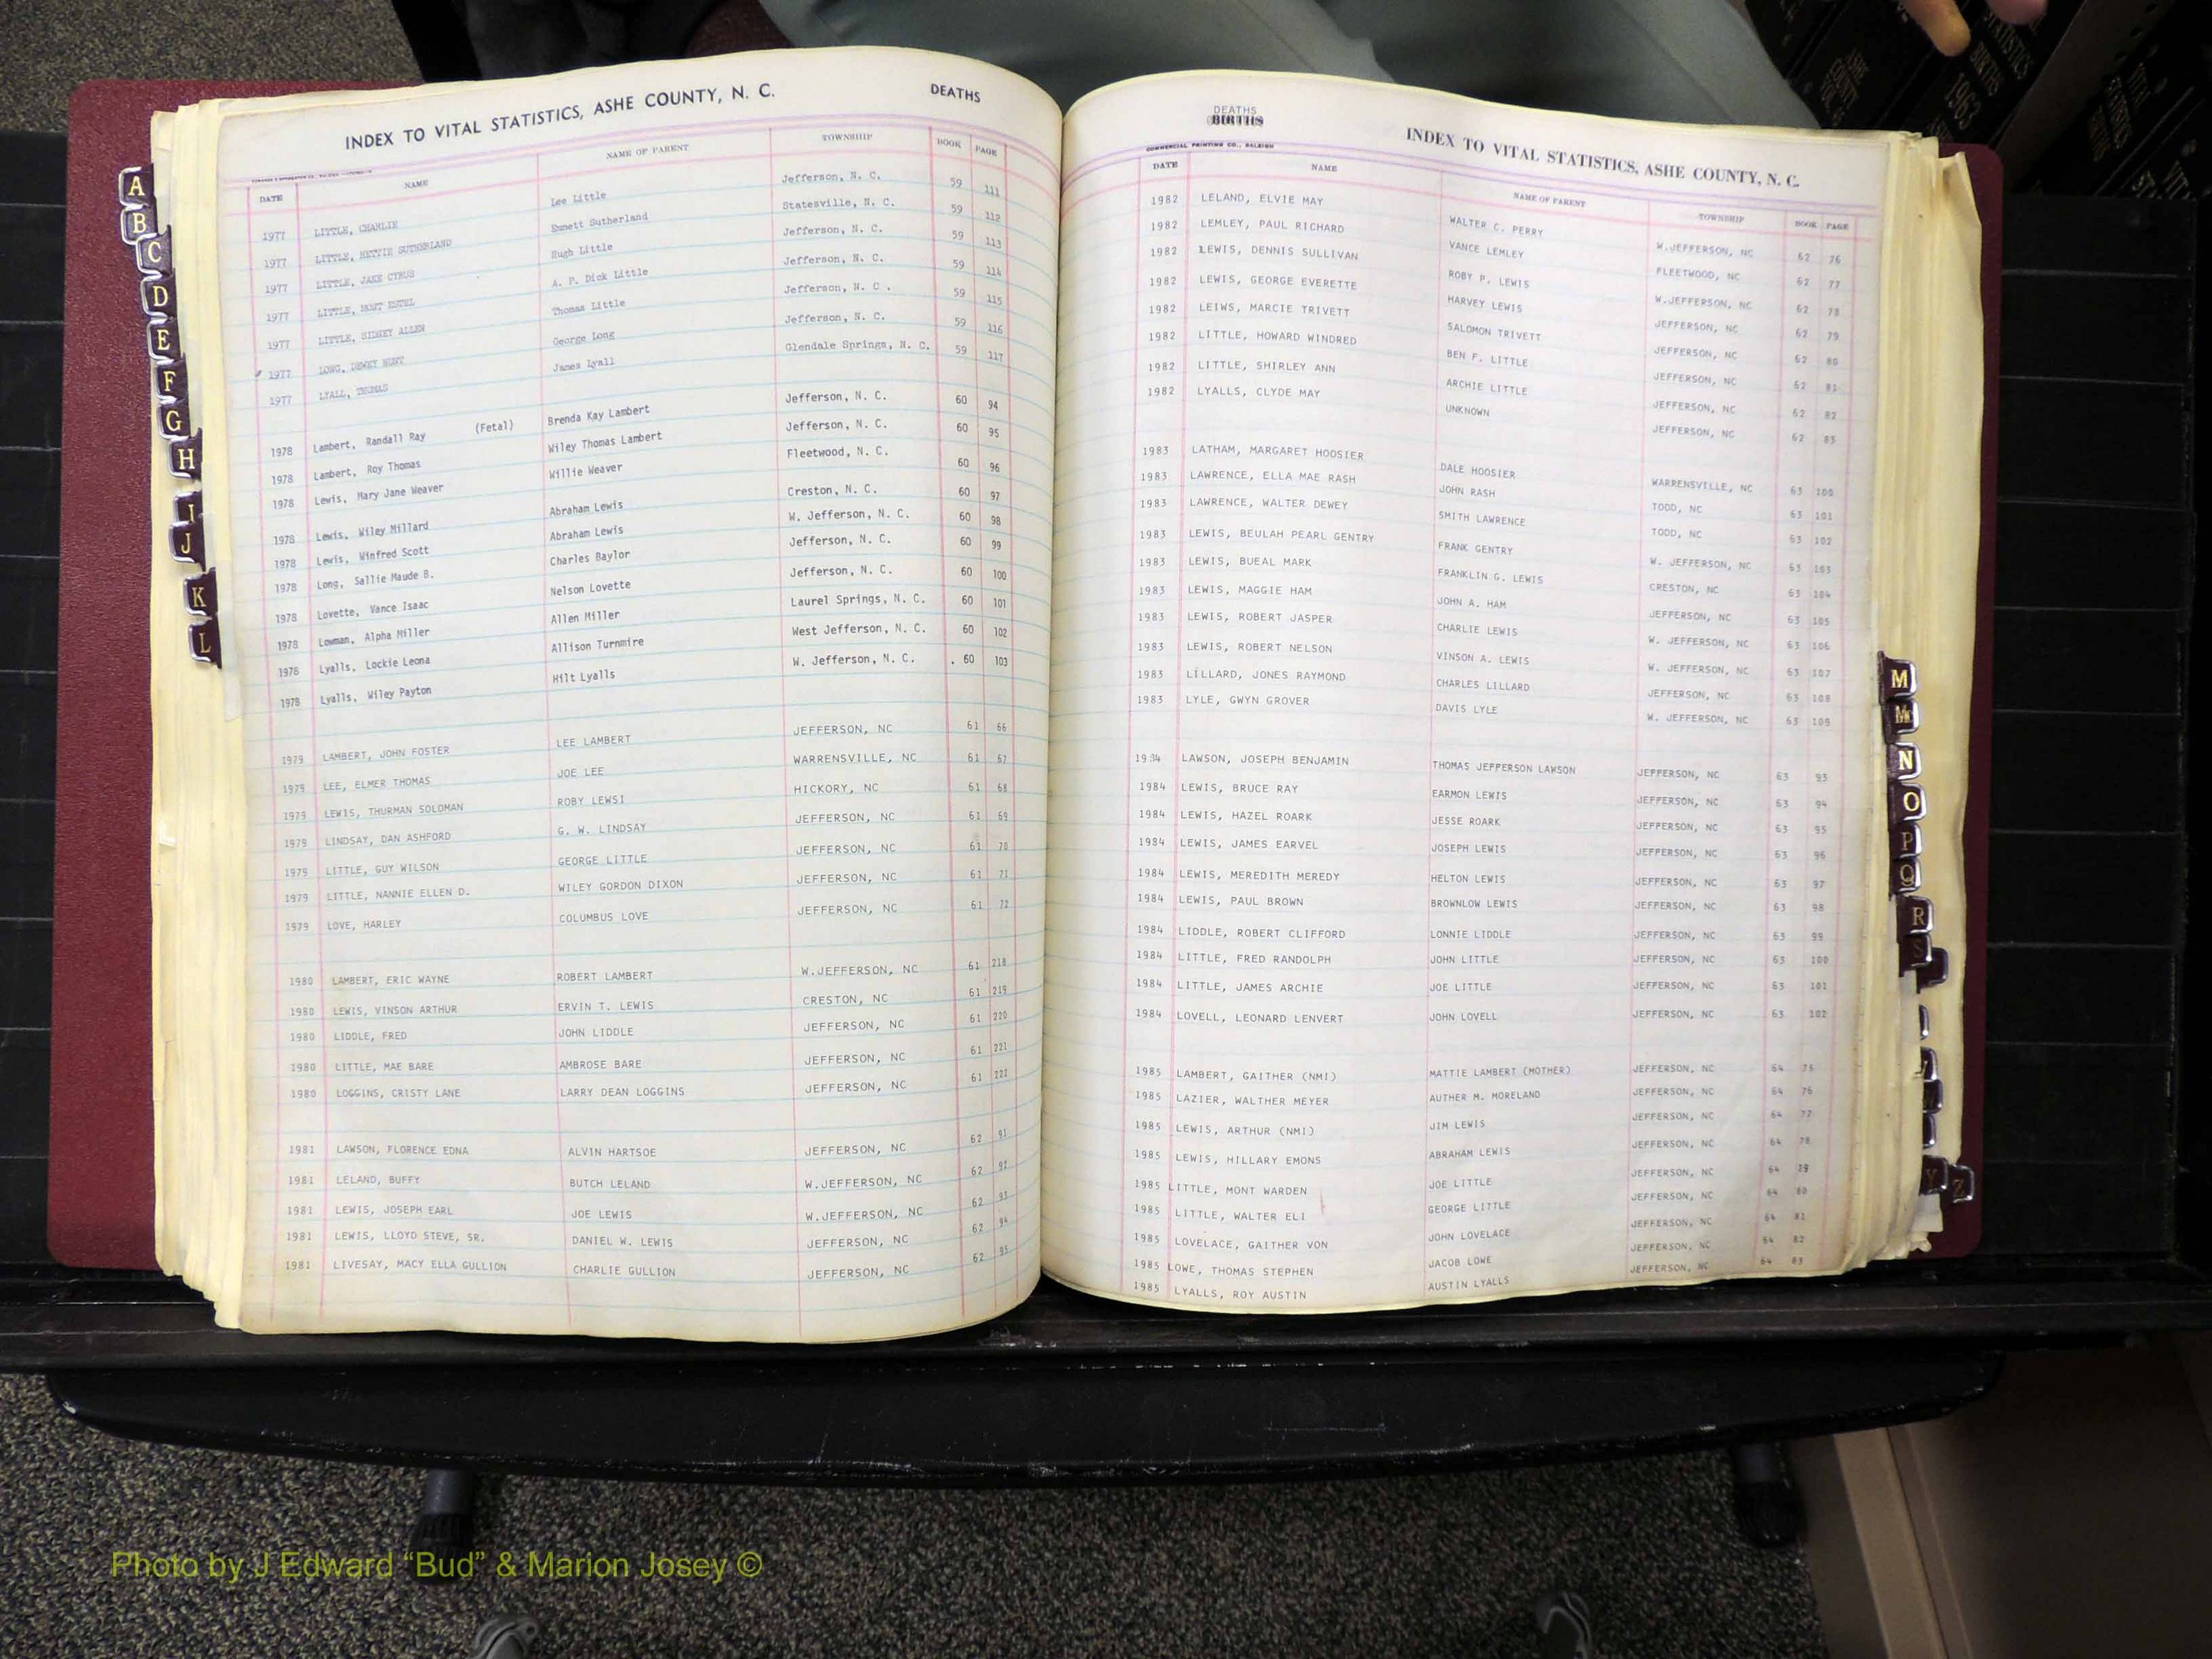 INDEX TO VITAL STATISTICS, ASHE COUNTY, N. C. DEATHS
DATE NAME NAME OF PARENT TOWNSHIP BOOK PAGE
1977 LITTLE, CHARLIE Lee Little Jefferson, N. C. 59 111
1977 LITTLE, HETTIE SUTHERLAND Emmett Sutherland Statesville, N. C. 59 112
1977 LITTLE, JAKE CYRUS Hugh Little Jefferson, N. C. 59 113
1977 LITTLE, MONT ESTEL A. P. Dick Little Jefferson, N. C. 59 114
1977 LITTLE, SIDNEY ALLEN Thomas Little Jefferson, N. C. 59 115
1977 LONG, DEWEY HUNT George Long Jefferson, N. C. 59 116
1977 LYALL, THOMAS James Lyall Glendale Springs, N. C. 59 117
1978 Lambert, Randall Ray (Fetal) Brenda Kay Lambert Jefferson, N. C. 60 94
1978 Lambert, Roy Thomas Wiley Thomas Lambert Jefferson, N. C. 60 95
1978 Lewis, Mary Jane Weaver Willie Weaver Fleetwood, N. C. 60 96
1978 Lewis, Wiley Millard Abraham Lewis Creston, N. C. 60 97
1978 Lewis, Winfred Scott Abraham Lewis W. Jefferson, N. C. 60 98
1978 Long, Sallie Maude B. Charles Baylor Jefferson, N. C. 60 99
1978 Lovette, Vance Isaac Nelson Lovette Jefferson, N. C. 60 100
1978 Lowman, Alpha Miller Allen Miller Laurel Springs, N. C. 60 101
1978 Lyalls, Lockie Leona Allison Turnmire West Jefferson, N. C. 60 102
1978 Lyalls, Wiley Payton Hilt Lyalls W. Jefferson, N. C. . 60 103
1979 LAMBERT, JOHN FOSTER LEE LAMBERT JEFFERSON, NC 61 66
1979 LEE, ELMER THOMAS JOE LEE WARRENSVILLE, NC 61 67
1979 LEWIS, THURMAN SOLOMAN ROBY LEWSI HICKORY, NC 61 68
1979 LINDSAY, DAN ASHFORD G. W. LINDSAY JEFFERSON, NC 61 69
1979 LITTLE, GUY WILSON GEORGE LITTLE JEFFERSON, NC 61 70
1979 LITTLE, NANNIE ELLEN D. WILEY GORDON DIXON JEFFERSON, NC 61 71
1979 LOVE, HARLEY COLUMBUS LOVE JEFFERSON, NC 61 72
1980 LAMBERT, ERIC WAYNE ROBERT LAMBERT W.JEFFERSON, NC 61 218
1980 LEWIS, VINSON ARTHUR ERVIN T. LEWIS CRESTON, NC 61 219
1980 LIDDLE, FRED JOHN LIDDLE JEFFERSON, NC 61 220
1980 LITTLE, MAE BARE AMBROSE BARE JEFFERSON, NC 61 221
1980 LOGGINS, CRISTY LANE LARRY DEAN LOGGINS JEFFERSON, NC 61 222
1981 LAWSON, FLORENCE EDNA ALVIN HARTSOE JEFFERSON, NC 62 91
1981 LELAND, BUFFY BUTCH LELAND W.JEFFERSON, NC 62 92
1981 LEWIS, JOSEPH EARL JOE LEWIS W.JEFFERSON, NC 62 93
1981 LEWIS, LLOYD STEVE, SR. DANIEL W. LEWIS JEFFERSON, NC 62 94
1981 LIVESAY, MACY ELLA GULLION CHARLIE GULLION JEFFERSON, NC 62 95
A
B
C
D
E
F
G
H
I
J
K
L
DEATHS
BIRTHS
INDEX TO VITAL STATISTICS, ASHE COUNTY, N. C.
COMMERCIAL PRINTING CO., RALEIGH
DATE NAME NAME OF PARENT TOWNSHIP BOOK PAGE
1982 LELAND, ELVIE MAY WALTER C. PERRY W.JEFFERSON, NC 62 76
1982 LEMLEY, PAUL RICHARD VANCE LEMLEY FLEETWOOD, NC 62 77
1982 LEWIS, DENNIS SULLIVAN ROBY P. LEWIS W.JEFFERSON, NC 62 78
1982 LEWIS, GEORGE EVERETTE HARVEY LEWIS JEFFERSON, NC 62 79
1982 LEIWS, MARCIE TRIVETT SALOMON TRIVETT JEFFERSON, NC 62 80
1982 LITTLE, HOWARD WINDRED BEN F. LITTLE JEFFERSON, NC 62 81
1982 LITTLE, SHIRLEY ANN ARCHIE LITTLE JEFFERSON, NC 62 82
1982 LYALLS, CLYDE MAY UNKNOWN JEFFERSON, NC 62 83
1983 LATHAM, MARGARET HOOSIER DALE HOOSIER WARRENSVILLE, NC 63 100
1983 LAWRENCE, ELLA MAE RASH JOHN RASH TODD, NC 63 101
1983 LAWRENCE, WALTER DEWEY SMITH LAWRENCE TODD, NC 63 102
1983 LEWIS, BEULAH PEARL GENTRY FRANK GENTRY W. JEFFERSON, NC 63 103
1983 LEWIS, BUEAL MARK FRANKLIN G. LEWIS CRESTON, NC 63 104
1983 LEWIS, MAGGIE HAM JOHN A. HAM JEFFERSON, NC 63 105
1983 LEWIS, ROBERT JASPER CHARLIE LEWIS W. JEFFERSON, NC 63 106
1983 LEWIS, ROBERT NELSON VINSON A. LEWIS W. JEFFERSON, NC 63 107
1983 LILLARD, JONES RAYMOND CHARLES LILLARD JEFFERSON, NC 63 108
1983 LYLE, GWYN GROVER DAVIS LYLE W. JEFFERSON, NC 63 109
1984 LAWSON, JOSEPH BENJAMIN THOMAS JEFFERSON LAWSON JEFFERSON, NC 63 93
1984 LEWIS, BRUCE RAY EARMON LEWIS JEFFERSON, NC 63 94
1984 LEWIS, HAZEL ROARK JESSE ROARK JEFFERSON, NC 63 95
1984 LEWIS, JAMES EARVEL JOSEPH LEWIS JEFFERSON, NC 63 96
1984 LEWIS, MEREDITH MEREDY HELTON LEWIS JEFFERSON, NC 63 97
1984 LEWIS, PAUL BROWN BROWNLOW LEWIS JEFFERSON, NC 63 98
1984 LIDDLE, ROBERT CLIFFORD LONNIE LIDDLE JEFFERSON, NC 63 99
1984 LITTLE, FRED RANDOLPH JOHN LITTLE JEFFERSON, NC 63 100
1984 LITTLE, JAMES ARCHIE JOE LITTLE JEFFERSON, NC 63 101
1984 LOVELL, LEONARD LENVERT JOHN LOVELL JEFFERSON, NC 63 102
1985 LAMBERT, GAITHER (NMI) MATTIE LAMBERT (MOTHER) JEFFERSON, NC 64 75
1985 LAZIER, WALTHER MEYER AUTHER M. MORELAND JEFFERSON, NC 64 76
1985 LEWIS, ARTHUR (NMI) JIM LEWIS JEFFERSON, NC 64 77
1985 LEWIS, HILLARY EMONS ABRAHAM LEWIS JEFFERSON, NC 64 78
1985 LITTLE, MONT WARDEN JOE LITTLE JEFFERSON, NC 64 79
1985 LITTLE, WALTER ELI GEORGE LITTLE JEFFERSON, NC 64 80
1985 LOVELACE, GAITHER VON JOHN LOVELACE JEFFERSON, NC 64 81
1985 LOWE, THOMAS STEPHEN JACOB LOWE JEFFERSON, NC 64 82
1985 LYALLS, ROY AUSTIN AUSTIN LYALLS JEFFERSON, NC 64 83
M
Mc
N
O
P
Q
R
S
Y
Z
ASHE COUNTY
STATISTICS BIRTHS 1963
Photo by J Edward “Bud” & Marion Josey ©